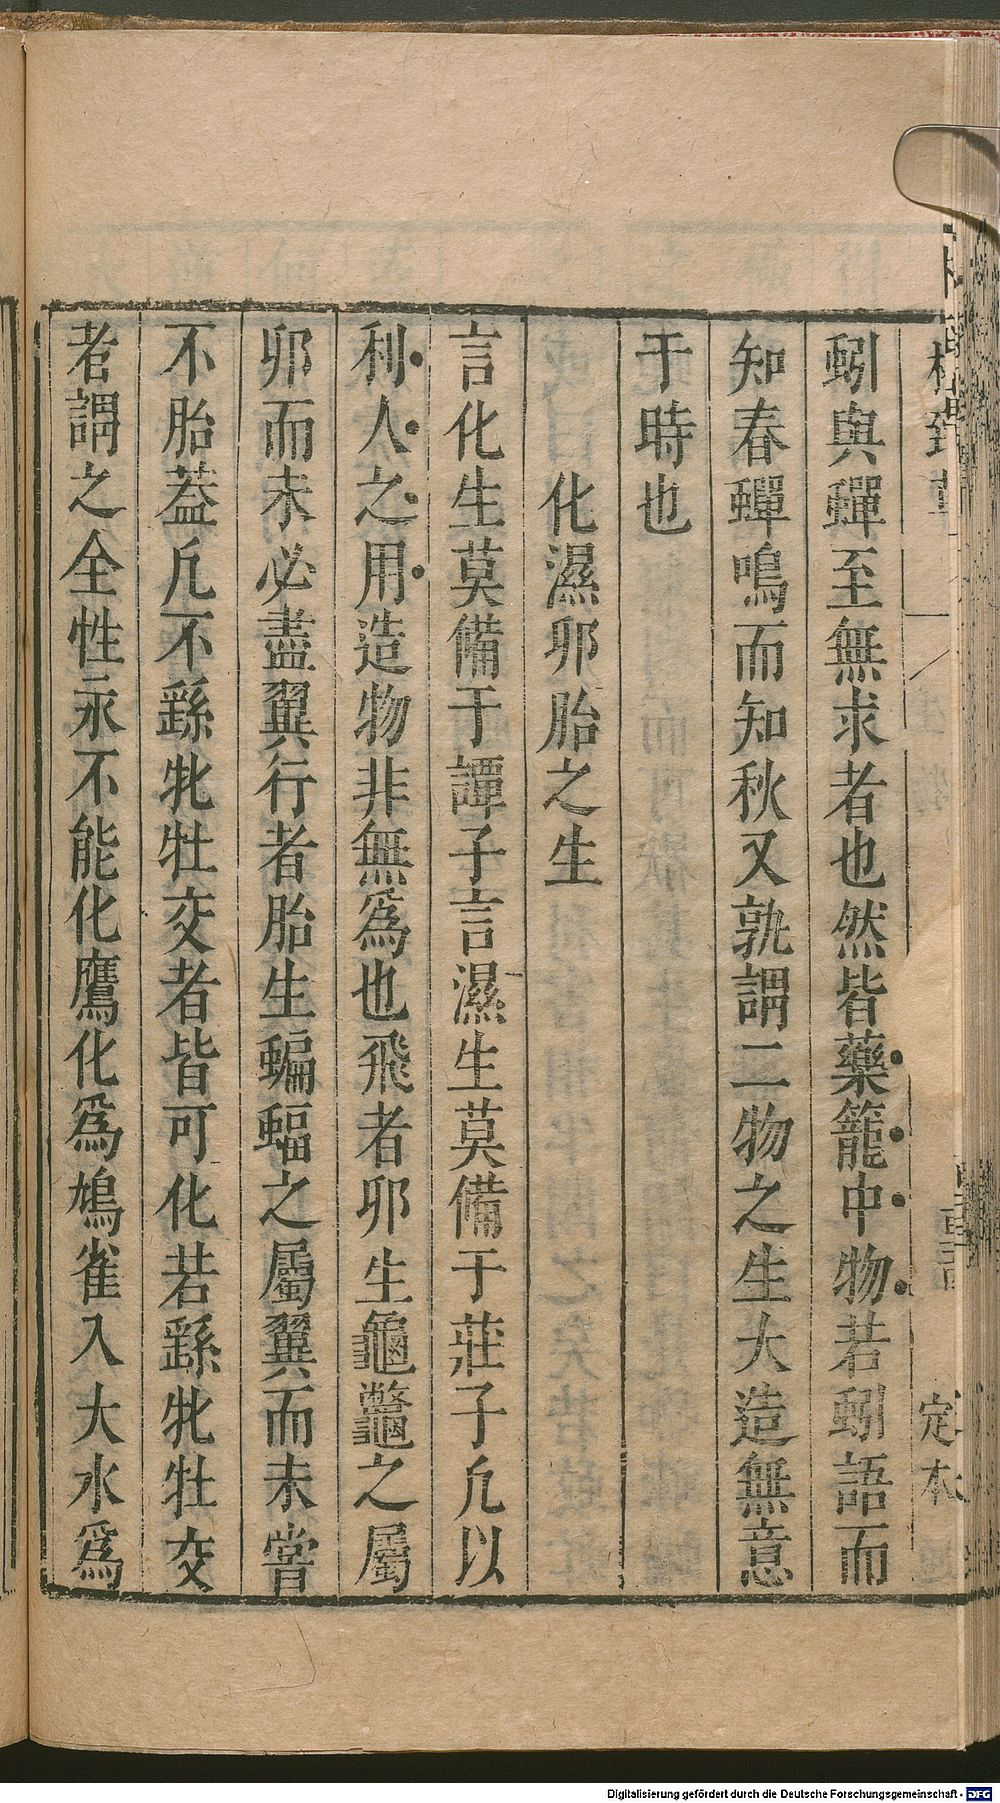 蚓與蟬至無求者也然皆藥籠中物若蚓語而
知春蟬鳴而知秋又孰謂二物之生大造無意
于時也
化濕卵胎之生
言化生莫備于譚子言濕生莫備于莊子凢以
利人之用造物非無爲也飛者卵生龜鼈之屬
卵而未必盡翼行者胎生蝙蝠之屬翼而未嘗
不胎葢凢不繇牝牡交者皆可化若繇牝牡交
者謂之全性永不能化鷹化爲鳩雀入大水爲
定本
Digitalisierung gefördert durch die Deutsche Forschungsgemeinschaft - DFG